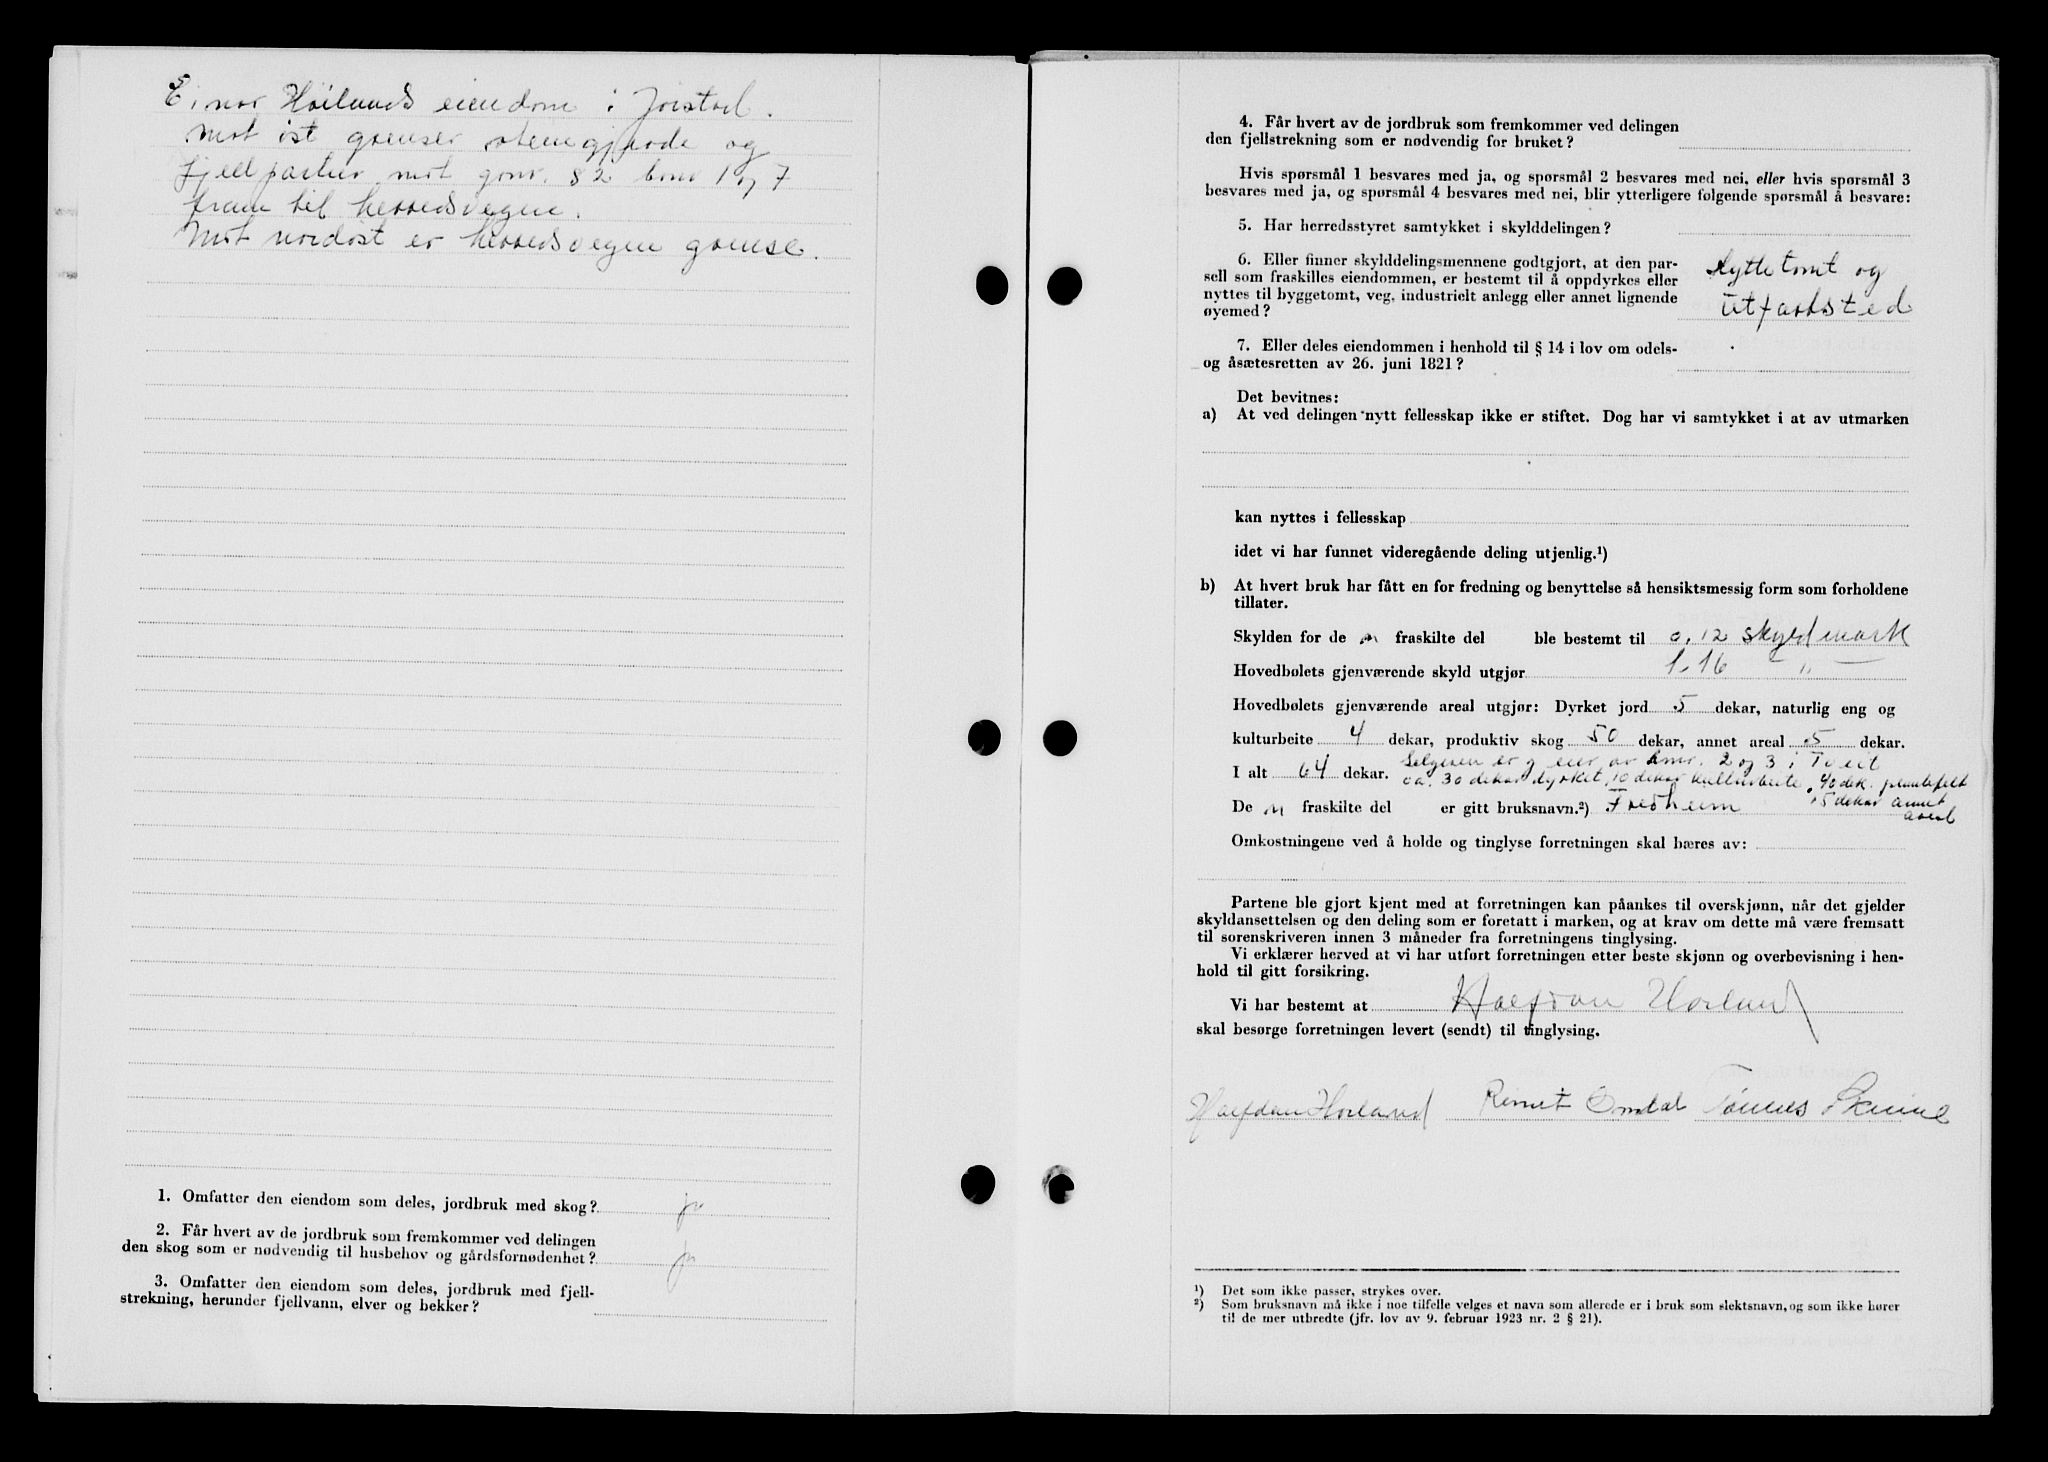 Einar Høilands eiendom i Joistad.
Mot øst grenser stenegjerde og
fjellpartier mot gnr. 82 bnr 1 og 7
fram til herredsvegen.
Mot nordøst er herredsvegen grense.
1. Omfatter den eiendom som deles, jordbruk med skog? ja
2. Får hvert av de jordbruk som fremkommer ved delingen
den skog som er nødvendig til husbehov og gårdsfornødenhet? ja
3. Omfatter den eiendom som deles, jordbruk med fjell-
strekning, herunder fjellvann, elver og bekker?
4. Får hvert av de jordbruk som fremkommer ved delingen
den fjellstrekning som er nødvendig for bruket?
Hvis spørsmål 1 besvares med ja, og spørsmål 2 besvares med nei, eller hvis spørsmål 3
besvares med ja, og spørsmål 4 besvares med nei, blir ytterligere følgende spørsmål å besvare:
5. Har herredsstyret samtykket i skylddelingen?
6. Eller finner skylddelingsmennene godtgjort, at den par-
sell som fraskilles eiendommen, er bestemt til å oppdyrkes eller
nyttes til byggetomt, veg, industrielt anlegg eller annet lignende
øyemed?
Hyttetomt og
utfartsted
7. Eller deles eiendommen i henhold til § 14 i lov om odels-
og åsætesretten av 26. juni 1821?
Det bevitnes:
a) At ved delingen nytt fellesskap ikke er stiftet. Dog har vi samtykket i at av utmarken
kan nyttes i fellesskap
idet vi har funnet videregående deling utjenlig.¹)
b) At hvert bruk har fått en for fredning og benyttelse så hensiktsmessig form som forholdene
tillater.
Skylden for de n fraskilte del ble bestemt til 0.12 skyldmark
Hovedbølets gjenværende skyld utgjør 1.16 — " —
Hovedbølets gjenværende areal utgjør: Dyrket jord 5 dekar, naturlig eng og
kulturbeite 4 dekar, produktiv skog 50 dekar, annet areal 5 dekar.
I alt 64 dekar. Selgeren er og eier av bnr. 2 og 3 i Tveit
ca. 30 dekar dyrket, 10 dekar kulturbeite, 40 dek. plantefelt
5 dekar annet
areal
De n fraskilte del er gitt bruksnavn.²) Fredheim
Omkostningene ved å holde og tinglyse forretningen skal bæres av:
Partene ble gjort kjent med at forretningen kan påankes til overskjønn, når det gjelder
skyldansettelsen og den deling som er foretatt i marken, og at krav om dette må være fremsatt
til sorenskriveren innen 3 måneder fra forretningens tinglysing.
Vi erklærer herved at vi har utført forretningen etter beste skjønn og overbevisning i hen-
hold til gitt forsikring.
Vi har bestemt at Halfdan Horland
skal besørge forretningen levert (sendt) til tinglysing.
Halfdan Horland Omdal Tønnes
¹) Det som ikke passer, strykes over.
²) Som bruksnavn må ikke i noe tilfelle velges et navn som allerede er i bruk som slektsnavn, og som ikke hører
til de mer utbredte (jfr. lov av 9. februar 1923 nr. 2 § 21).